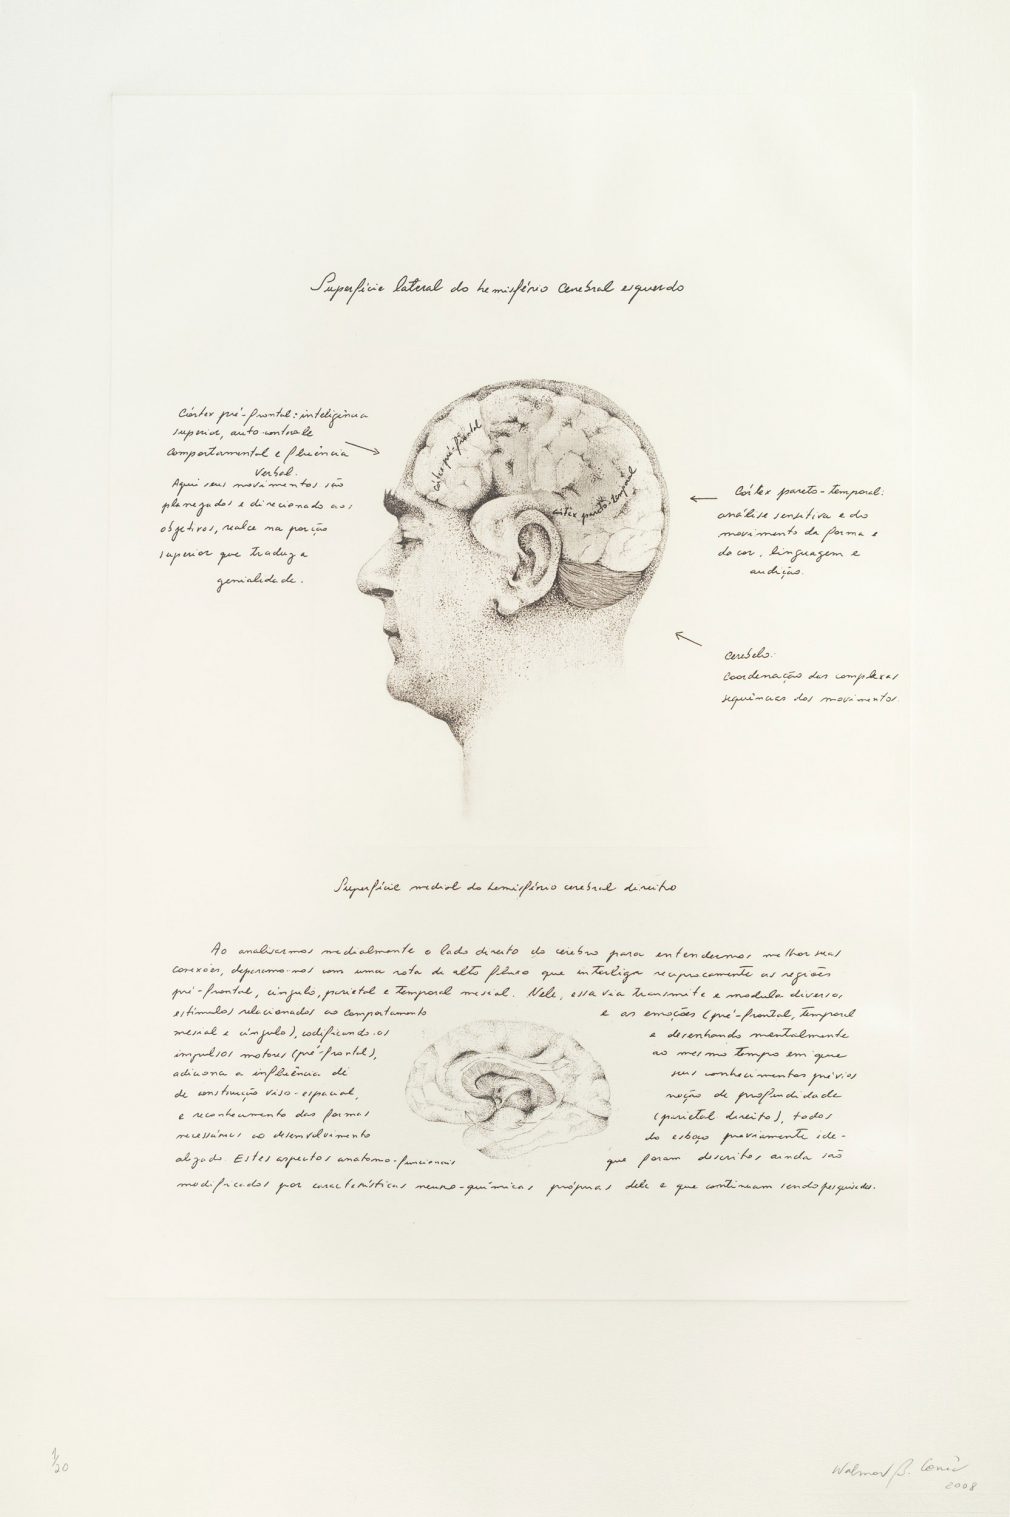 Superfície lateral do hemisfério cerebral esquerdo
Córtex pré-frontal: inteligência
superior, auto-controle
comportamental e fluência
verbal.
Aqui seus movimentos são
planegados e direcionado aos
objetivos, realce na porção
superior que traduz a
genialidade.
córtex pré-frontal
córtex pareto-temporal
Córtex pareto-temporal:
análise sensitiva e do
movimento da forma e
da cor, linguagem e
audição.
Cerebelo:
Coordenação das complexas
sequências dos movimentos.
Superfície medial do hemisfério cerebral direito
Ao analisarmos medialmente o lado direito do cérebro para entendermos melhor suas
conexões, deparamo-nos com uma rota de alto fluxo que interliga reciprocamente as regiões
pré-frontal, cíngulo, parietal e temporal mesial. Nele, essa via transmite e modula diversos
estímulos relacionados ao comportamento e as emoções (pré-frontal, temporal
mesial e cíngulo), codificando os e desenhando mentalmente
impulsos motores (pré-frontal), ao mesmo tempo em que
adiciona a influência de seus conhecimentos prévios
de construção viso-espacial, noção de profundidade
e reconhecimento das formas (parietal direito), todos
necessários ao desenvolvimento do esboço previamente ide-
alizado. Estes aspectos anatomo-funcionais que foram descritos ainda são
modificados por características neuro-químicas próprias dele e que continuam sendo pesquisadas.
1/30
Walmor B. Corrêa
2008